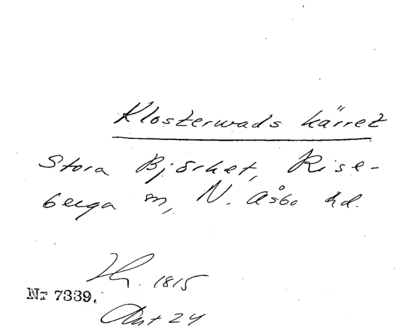 Klosterwads kärret
Stora Björket, Rise-
berga sn, N. Åsbo hd.
1815
Nr 7339.
Akt 24